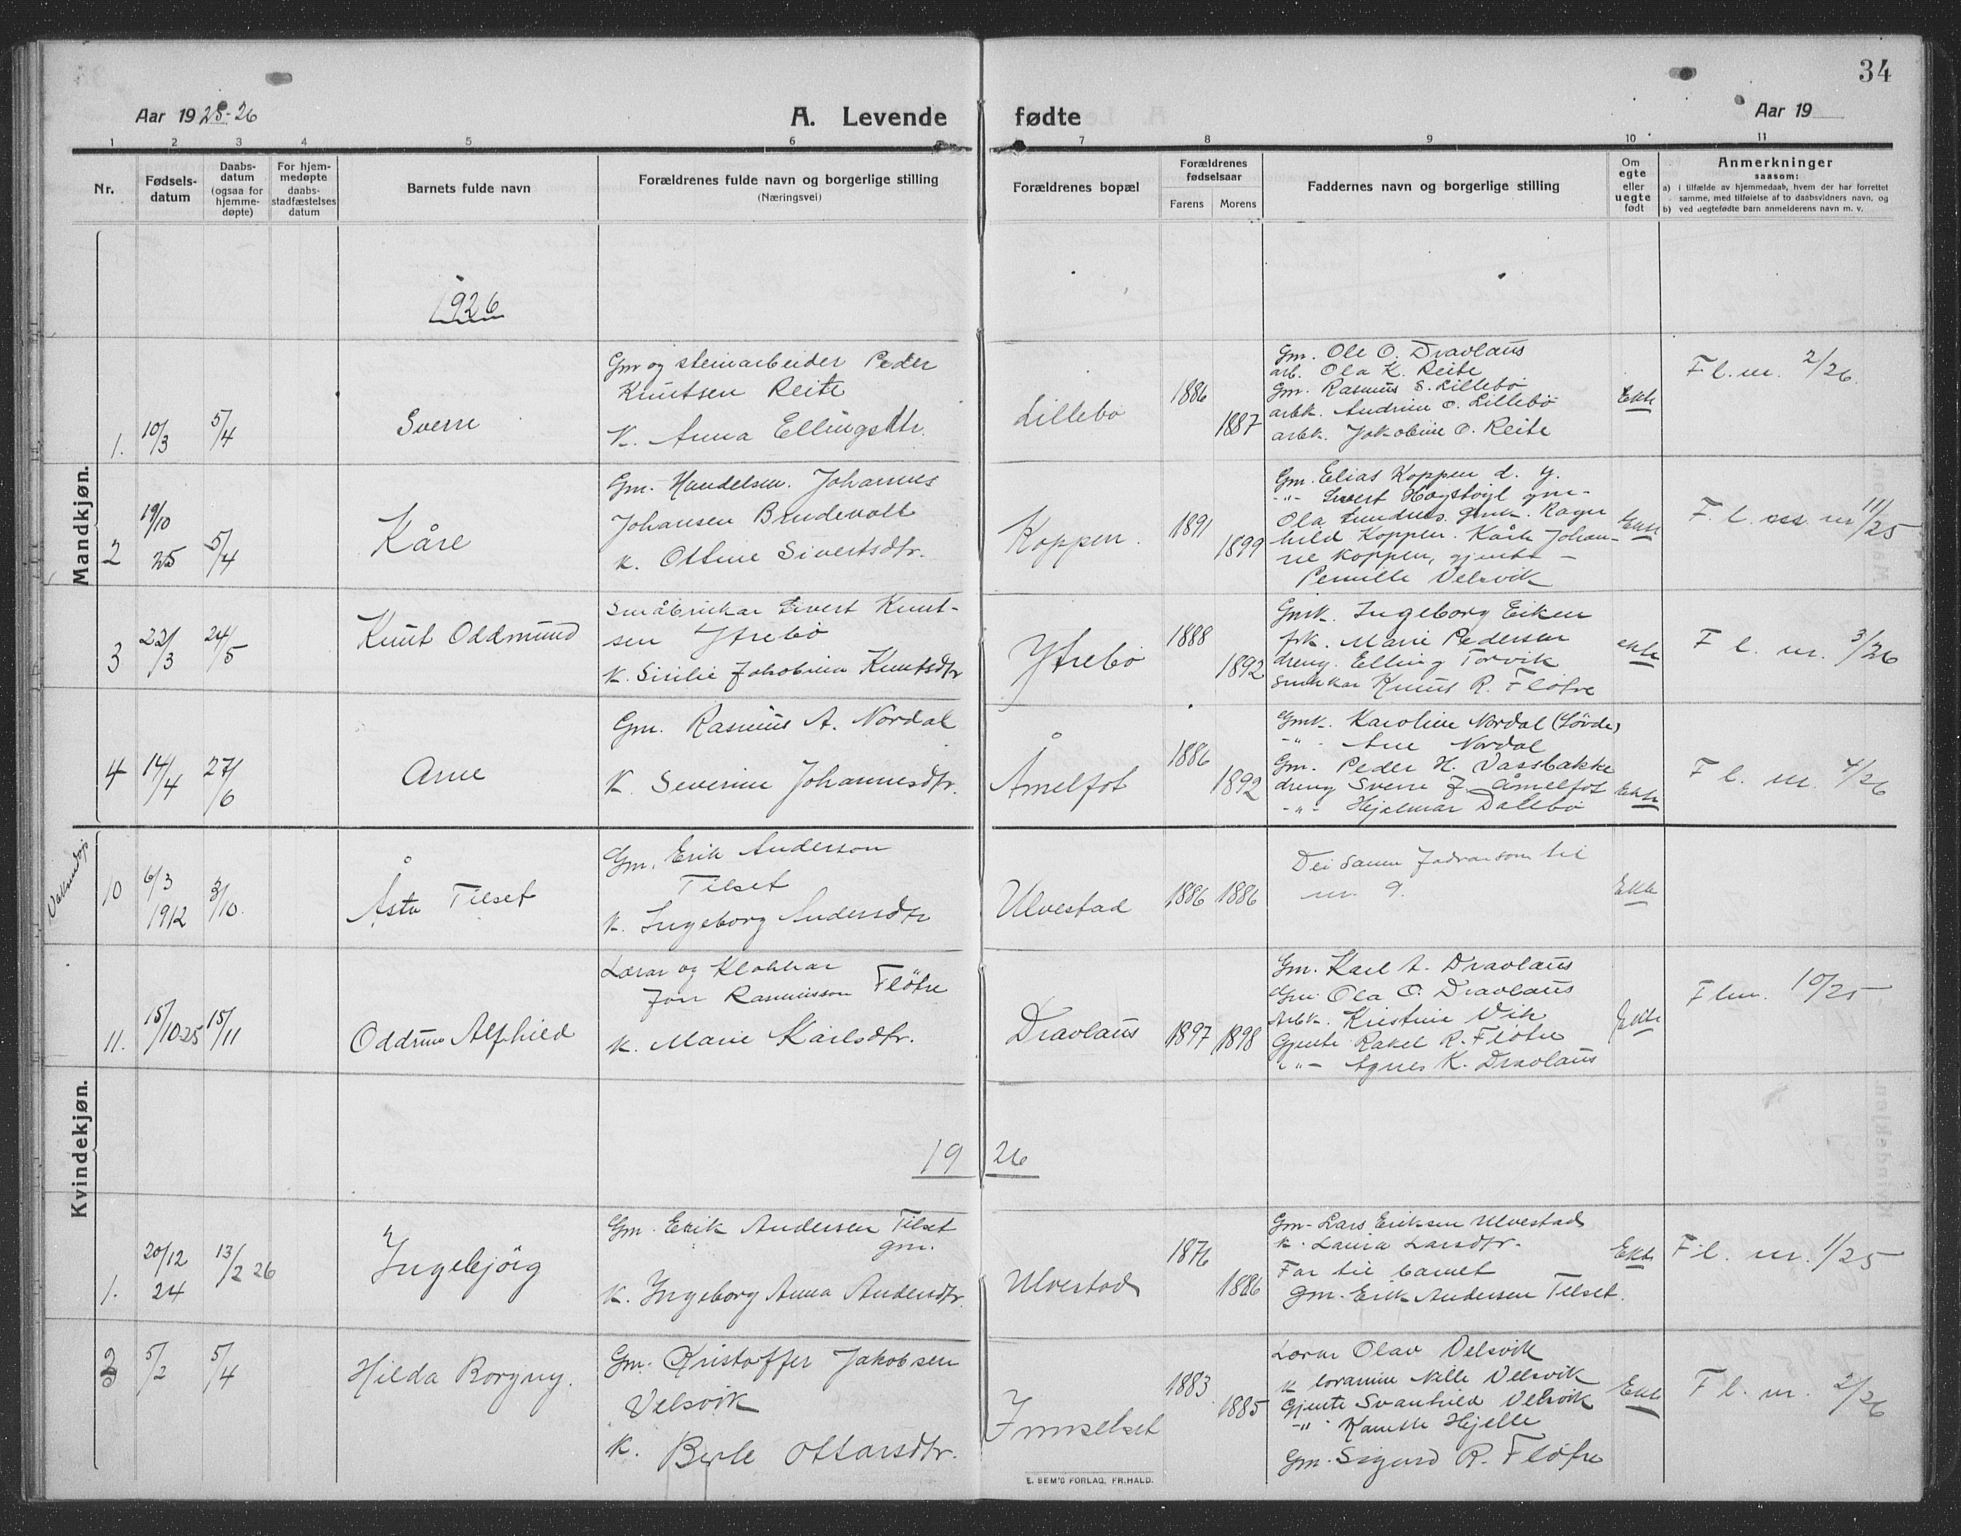 34
Aar 1925-26
A. Levende fødte
Aar 19
1 2 3 4 5 6 7 8 9 10 11
Nr.
Fødsels-
datum
Daabs-
datum
(ogsaa for
hjemme-
døpte)
For hjem-
medøpte
daabs-
stadfæstelses
datum
Barnets fulde navn
Forældrenes fulde navn og borgerlige stilling
(Næringsvei)
Forældrenes bopæl
Forældrenes
fødselsaar
Farens Morens
Faddernes navn og borgerlige stilling
Om
egte
eller
uegte
født
Anmerkninger
saasom:
a) i tilfælde av hjemmedaab, hvem der har forrettet
samme, med tilføielse af to daabsvidners navn, og
b) ved uegtefødte barn anmelderens navn m. v.
Mandkjøn.
1926
1. 10/3 5/4
Sverre
Gm og steinarbeider Peder
Knutsen Reite
K. Anna Ellingsdtr
Lillebø
1886 1887
Gm. Ole O. Dravlaus
arb. Ola K. Reite
Gm. Rasmus S. Lillebø
arbk. Andrine O. Lillebø
arbk. Jokobine O. Reite
Ekte
F l. nr. 2/26.
2 19/10 25 5/4
Kåre
Gm. Handelsm. Johannes
Johansen Brudevoll
K. Ottine Sivertsdtr.
Koppen.
1891 1899
Gm. Elias Koppen d. y.
-"- Sivert Hogstøyl gm-
Ola Sundnes. gmk. Ragn
hild Koppen. Kårk Johan-
ne Koppen, gjente -
Pernille Velsvik
Ekte
F. l. nr 11/25
3 22/3 24/5
Knut Oddmund
Småbrukar Sivert Knut-
sen Ytrebø
K. Sicilie Jakobina Knutsdtr
Ytrebø
1888 1892
Gmk. Ingeborg Eiken
frk. Marie Pedersen
dreng. Elling Torvik
Smbkar Knut R. Fløtre
ekte
F l. nr. 3/26
4 14/4 27/6
Arne
Gm. Rasmus A. Nordal
K. Severine Johannesdtr.
Åmelfot
1886 1892
Gmk. Karoline Nordal (Søvde)
-"- Ane Nordal
Gm. Peder H. Vassbakke
dreng Sverre J. Åmelfot
-"- Hjelmar Dalebø
Ekte
F l. nr. 4/26
Kvindekjøn.
10 6/3 1912 3/10.
Åsta Tilset
Gm. Erik Anderson
Tilset
K. Ingeborg Andersdtr
Ulvestad
1886 1886
Dei same fadrar som til
nr. 9.
Ekte
11. 15/10 25 15/11
Oddrun Alfhild
Lærar og Klokkar
Jon Rasmusson Fløtre
K. Marie Karlsdtr.
Dravlaus
1897 1898
Gm. Karl A. Dravlaus
Gm. Ola O. Dravlaus
Arbk. Kristine Vik
Gjente Rakel R. Fløtre
-"- Agnes K. Dravlaus
Ekte
F l nr. 10/25
1926
1. 20/12 24 13/2 26
Ingebjørg
Gm. Erik Andersen Tilset
gm.
K. Ingeborg Anna Andersdtr.
Ulvestad
1876 1886
Gm- Lars Eriksen Ulvestad
K. Laura Larsdtr.
Far til barnet
gm. Erik Andersen Tilset.
Ekte
F l. nr. 1/25
2 5/2 5/4
Hilda Borgny.
Gm. Kristoffer Jakobsen
Velsvik
K. Berte Ottarsdtr.
Innselset
1883 1885
Lærar Olav Velsvik
K lorarine Nille Velsvik
Gjente Svanhild Velsvik
-"- Kamille Hjelle
Gm. Sigurd R. Fløtre
Ekte
F l. nr. 2/26
E. SEM'S FORLAG, FR.HALD.